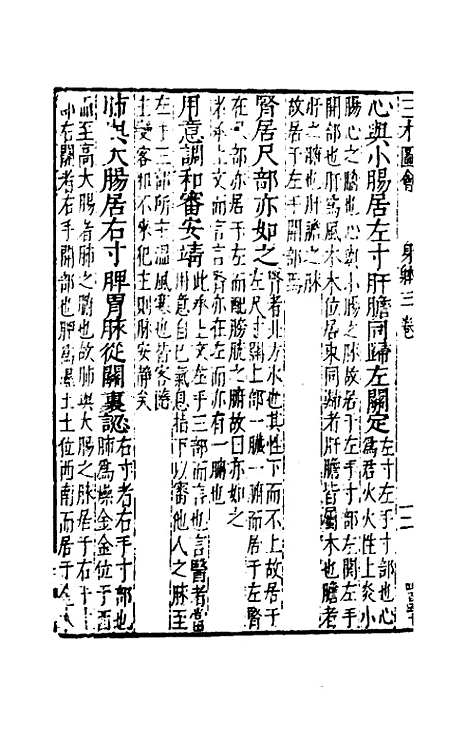 三才圖會 身體三卷 二
心與小腸居左寸肝膽同歸左關定左寸左手寸部也心
爲君火火性上炎小
腸心之腑也心與小腸之脉故居于左手寸部左關左手
關部也肝爲風木木位居東同歸者肝膽皆屬木也膽者
肝之腑也肝膽之脉
故居于左手關部焉
腎居尺部亦如之腎者北方水也其性下而不上故居于
左尺寸關上部一臟一腑而居于左腎
在尺部亦居于左而配膀胱之腑故曰亦如之
者承上文而言言在左而亦有一腑也
用意調和審安靖此承上文左手三部而言也言醫者當
用意自己氣息指下以審他人之脉至
左手三部所主溫風寒也皆客隨
主變客邪不來犯主則脉安靜矣
肺與大腸居右寸脾胃脉從關裏認右寸者右手寸部也
肺爲燥金金位于西
而至高大腸者肺之腑也故肺與大腸之脉居于右手寸
部右關者右手關部也脾爲濕土土位西南而居于